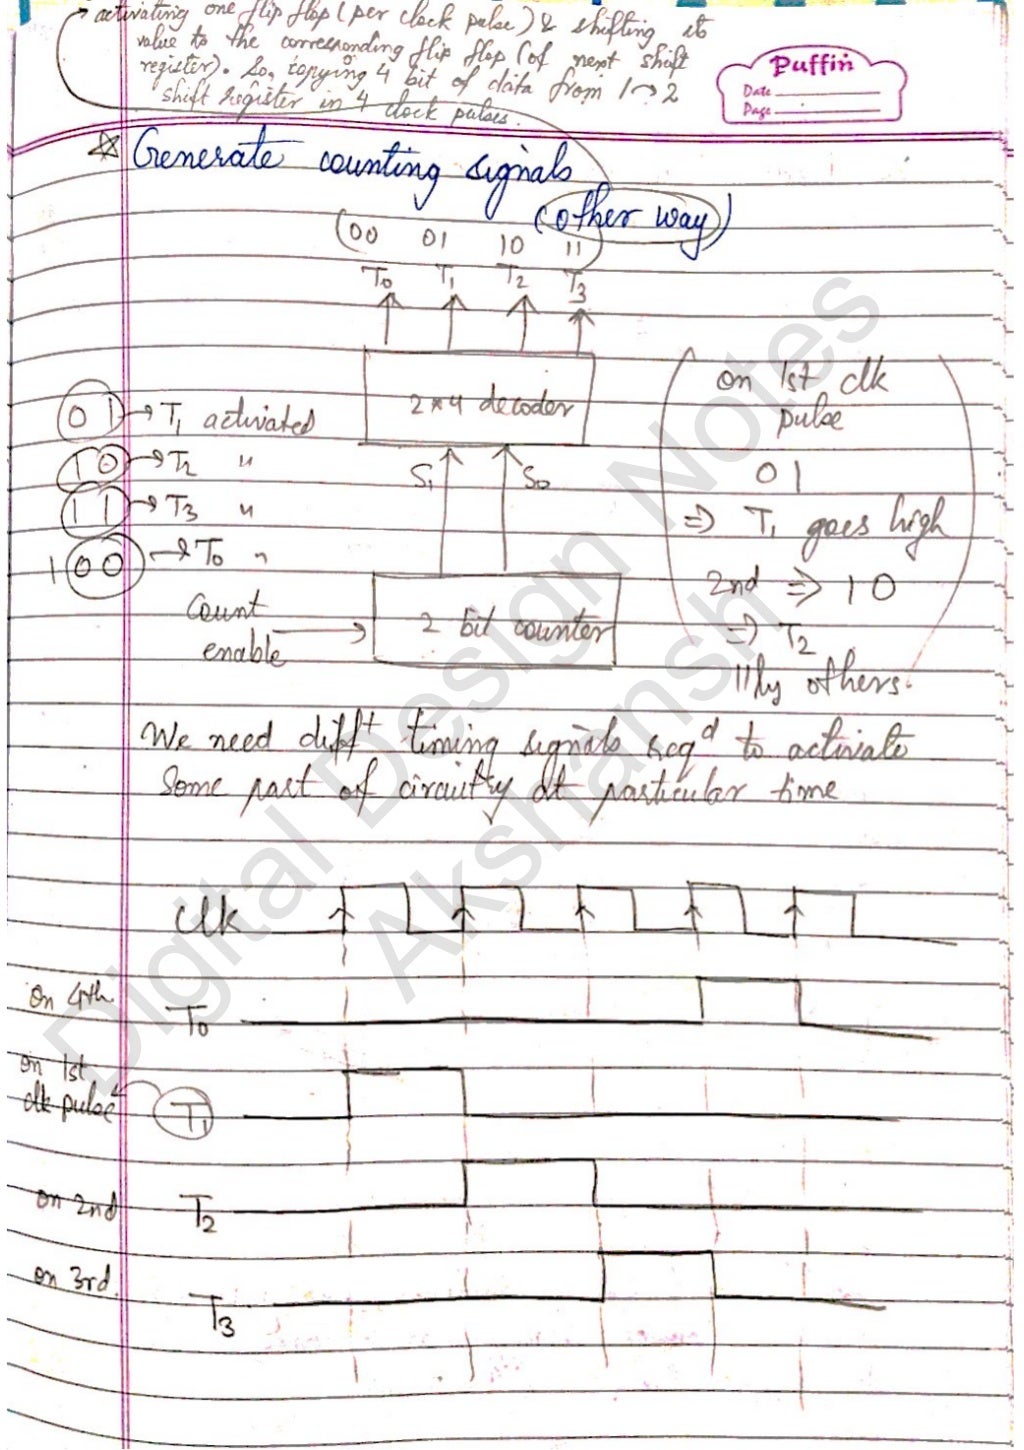 → activating one flip flop (per clock pulse) & shifting its
value to the corresponding flip flop (of next shift
register). So, copying 4 bit of data from 1→2
shift register in 4 clock pulses.
Puffin
Date
Page
☆ Generate counting signals
(other way)
00 01 10 11
T0 T1 T2 T3
2*4 decoder
S1 S0
2 bit counter
Count
enable
01 → T1 activated
10 → T2 "
11 → T3 "
100 → T0 "
on 1st clk
pulse
01
⇒ T1 goes high
2nd ⇒ 10
⇒ T2
||ly others.
We need diff^t timing signals req^d to activate
some part of circuitry at particular time
clk
on 4th. T0
on 1st
clk pulse T1
on 2nd T2
on 3rd. T3
Digital Design Notes
Akshansh